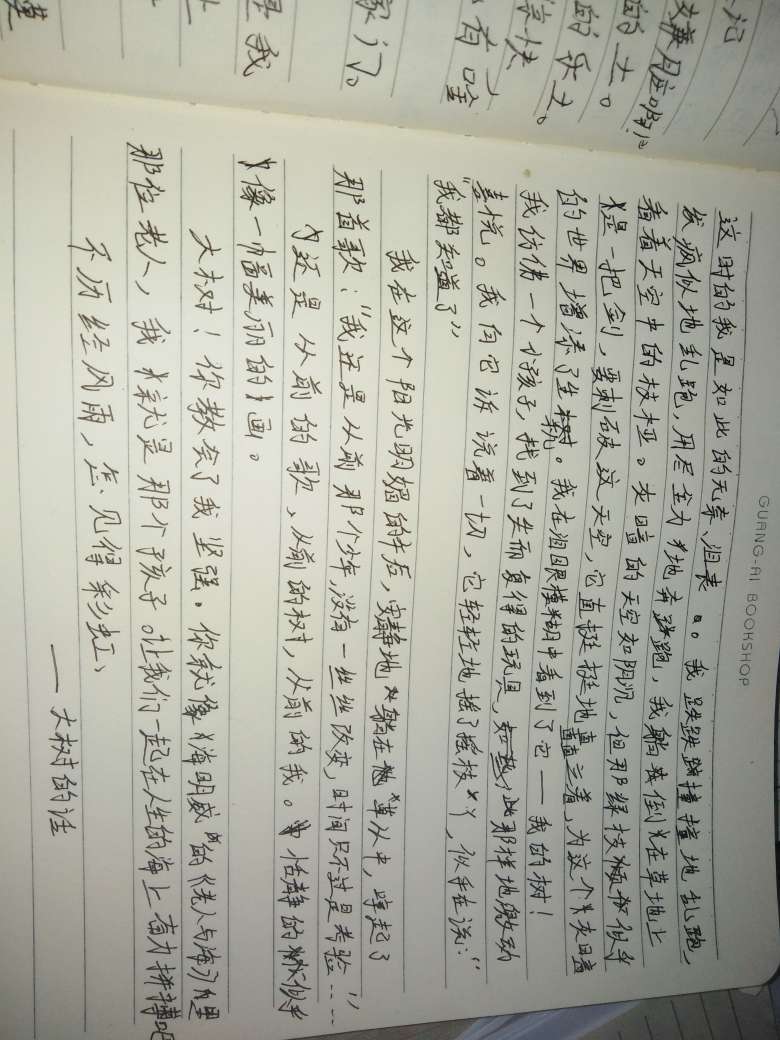 GUANG-AI BOOKSHOP
这时的我是如此的无奈、沮丧。我跌跌蹱撞撞地乱跑,
发疯似地乱跑,用尽全力地奔跑,我躺倒在草地上
看着天空中的枝桠。灰暗的天空如阴沉,但那绿枝桠似乎
是一把剑,要刺破这天空,它直挺挺地矗立着,为这个灰暗
的世界增添了生机。我在泪眼模糊中看到了它——我的树!
我仿佛一个小孩子,找到了失而复得的玩具,如此那样地激动
喜悦。我向它诉说着一切,它轻轻地摇了摇枝丫,似乎在说:“
我都知道了”
我在这个阳光明媚的午后,安静地躺在草丛中,哼起了
那首歌:“我还是从前那个少年,没有一丝丝改变,时间只不过是考验……”
还是从前的歌,从前的树,从前的我。恬静的似乎
像一幅美丽的画。
大树!你教会了我坚强。你就像海明威的《老人与海》里
那位老人,我就是那个孩子。让我们一起在人生的海上奋力拼搏吧
不历经风雨,怎见得彩虹、
——大树的话
家门。
是我